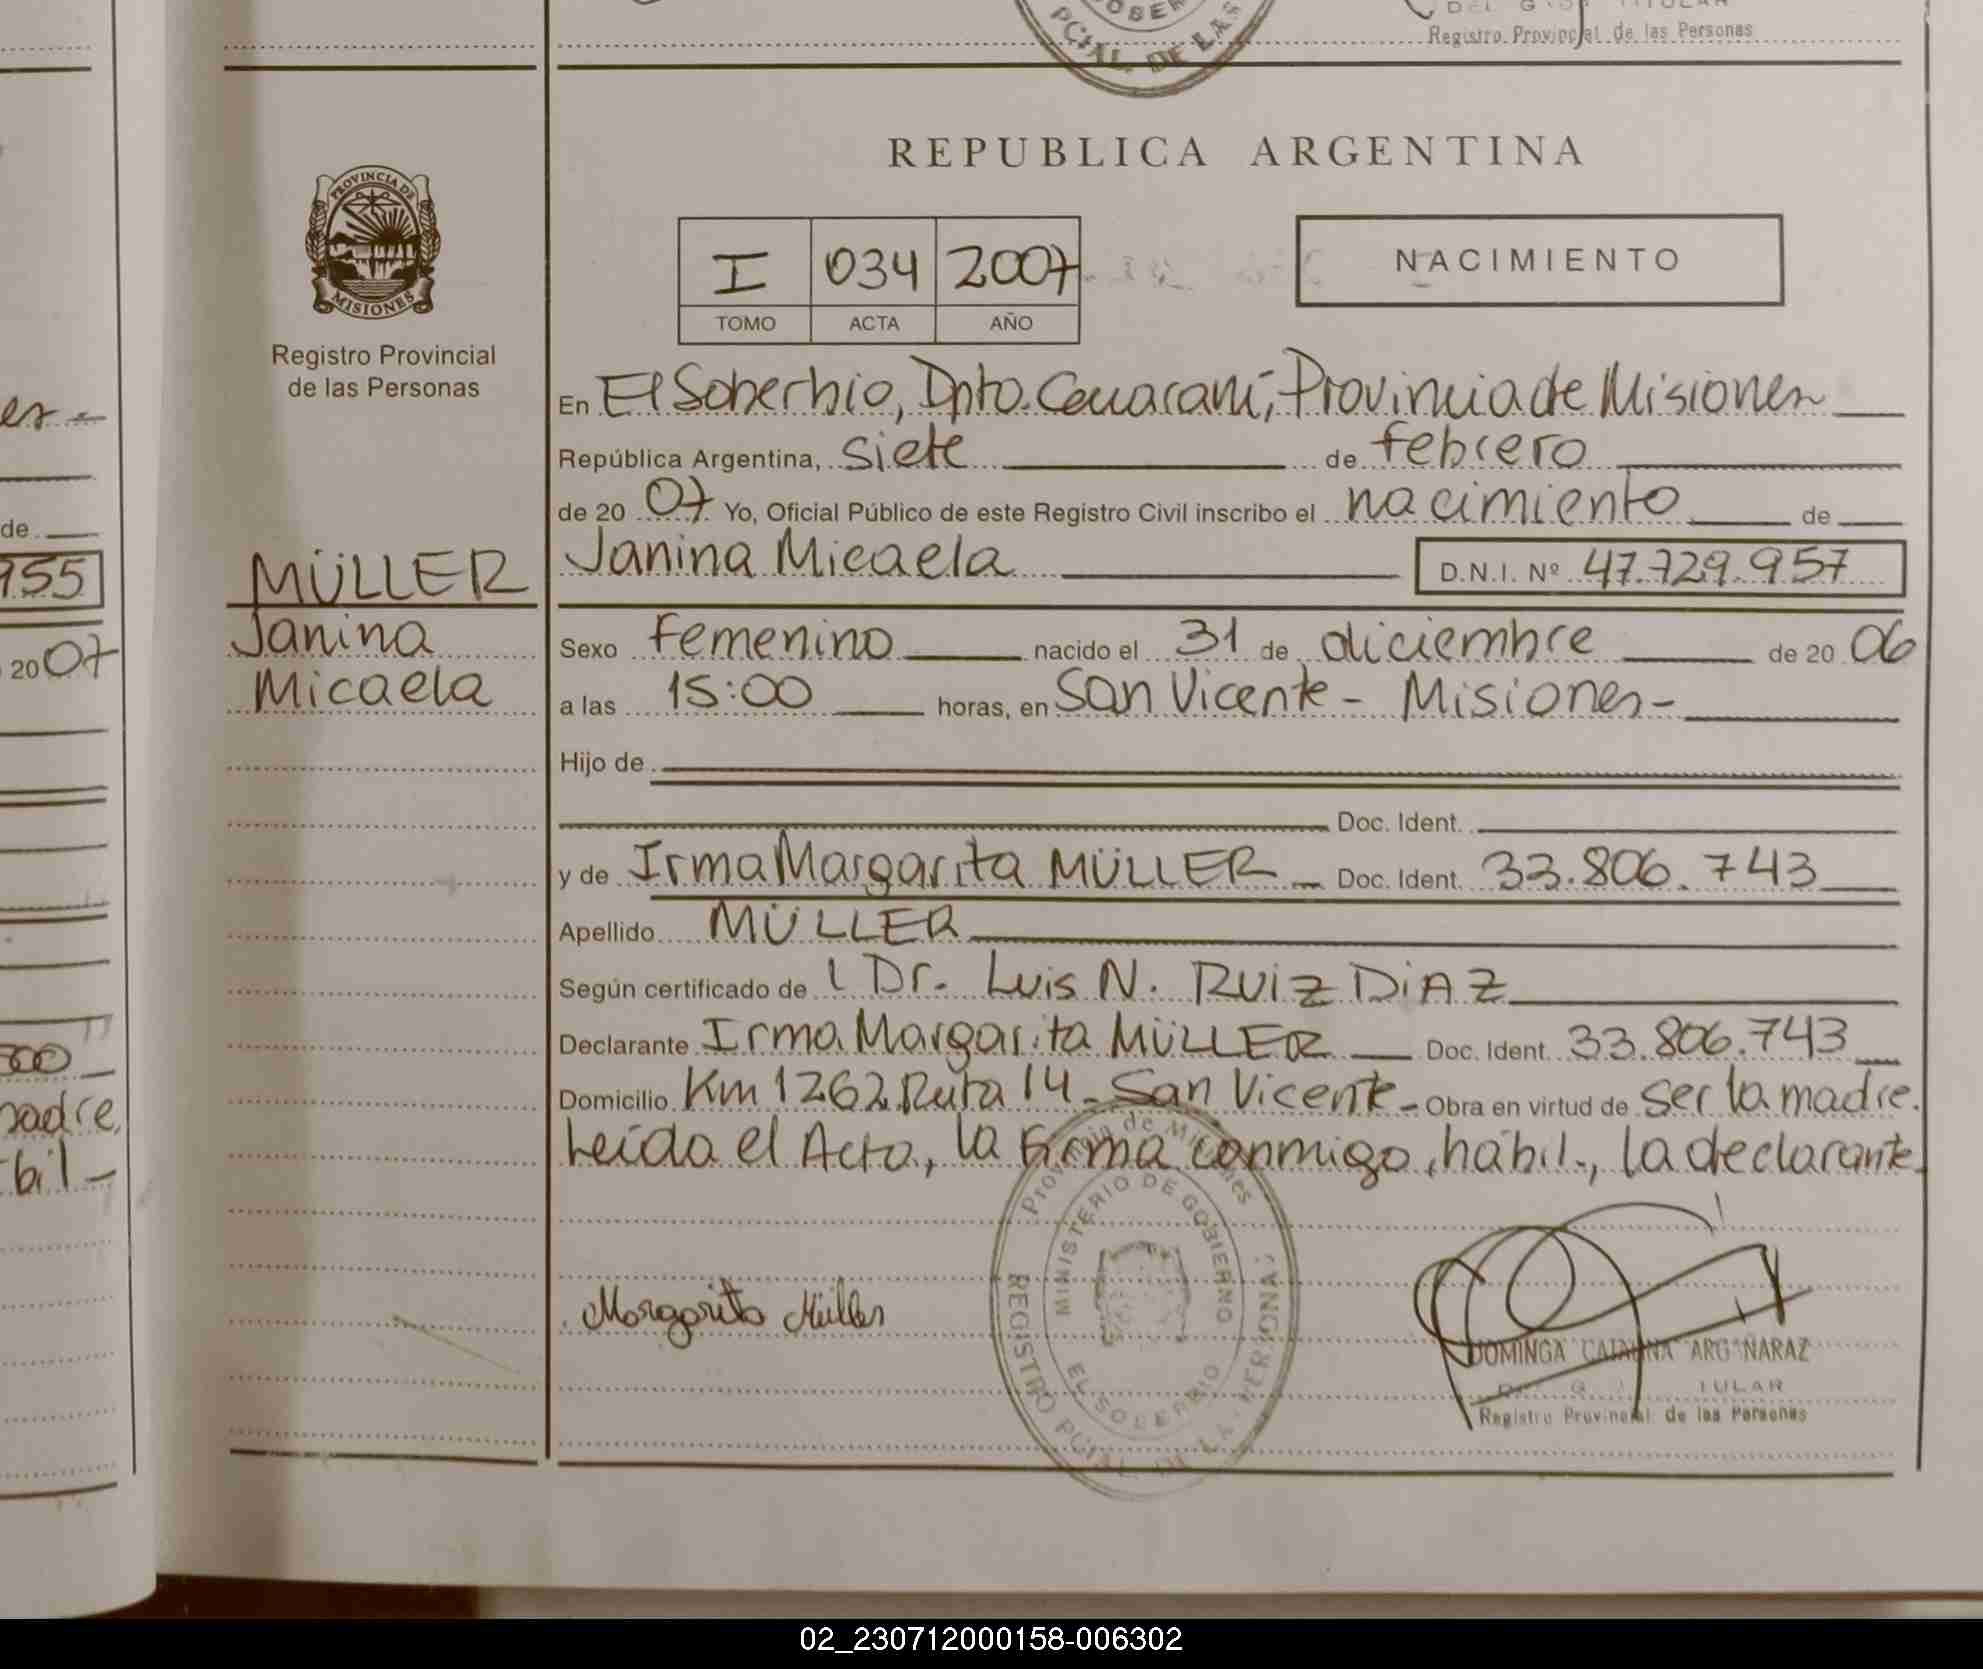 DEL G TITULAR
Registro Provincial de las Personas
PCIAL. DE LAS
REPUBLICA ARGENTINA
PROVINCIA DE
MISIONES
Registro Provincial
de las Personas
I 034 2007
TOMO ACTA AÑO
NACIMIENTO
En El Soberbio, Dpto. Guaraní, Provincia de Misiones
República Argentina, siete de febrero
de 2007 Yo, Oficial Público de este Registro Civil inscribo el nacimiento de
Janina Micaela D.N.I. Nº 47.729.957
MÜLLER
Janina
Micaela
Sexo femenino nacido el 31 de diciembre de 2006
a las 15:00 horas, en San Vicente - Misiones-
Hijo de
Doc. Ident.
y de Irma Margarita MÜLLER Doc. Ident. 33.806.743
Apellido MÜLLER
Según certificado de l Dr. Luis N. RUiZ DiAZ
Declarante Irma Margarita MÜLLER Doc. Ident. 33.806.743
Domicilio Km 1262 Ruta 14 - San Vicente - Obra en virtud de ser la madre.
Leída el Acta, la firma conmigo, hábil, la declarante
Margarita Müller
Provincia de Misiones
MINISTERIO DE GOBIERNO
EL SOBERBIO
REGISTRO PCIAL. DE LA PERSONA
DOMINGA CATALINA ARG ÑARAZ
TULAR
Registro Provincial de las Personas
es-
de
955
2007
500
madre,
bil-
02_230712000158-006302